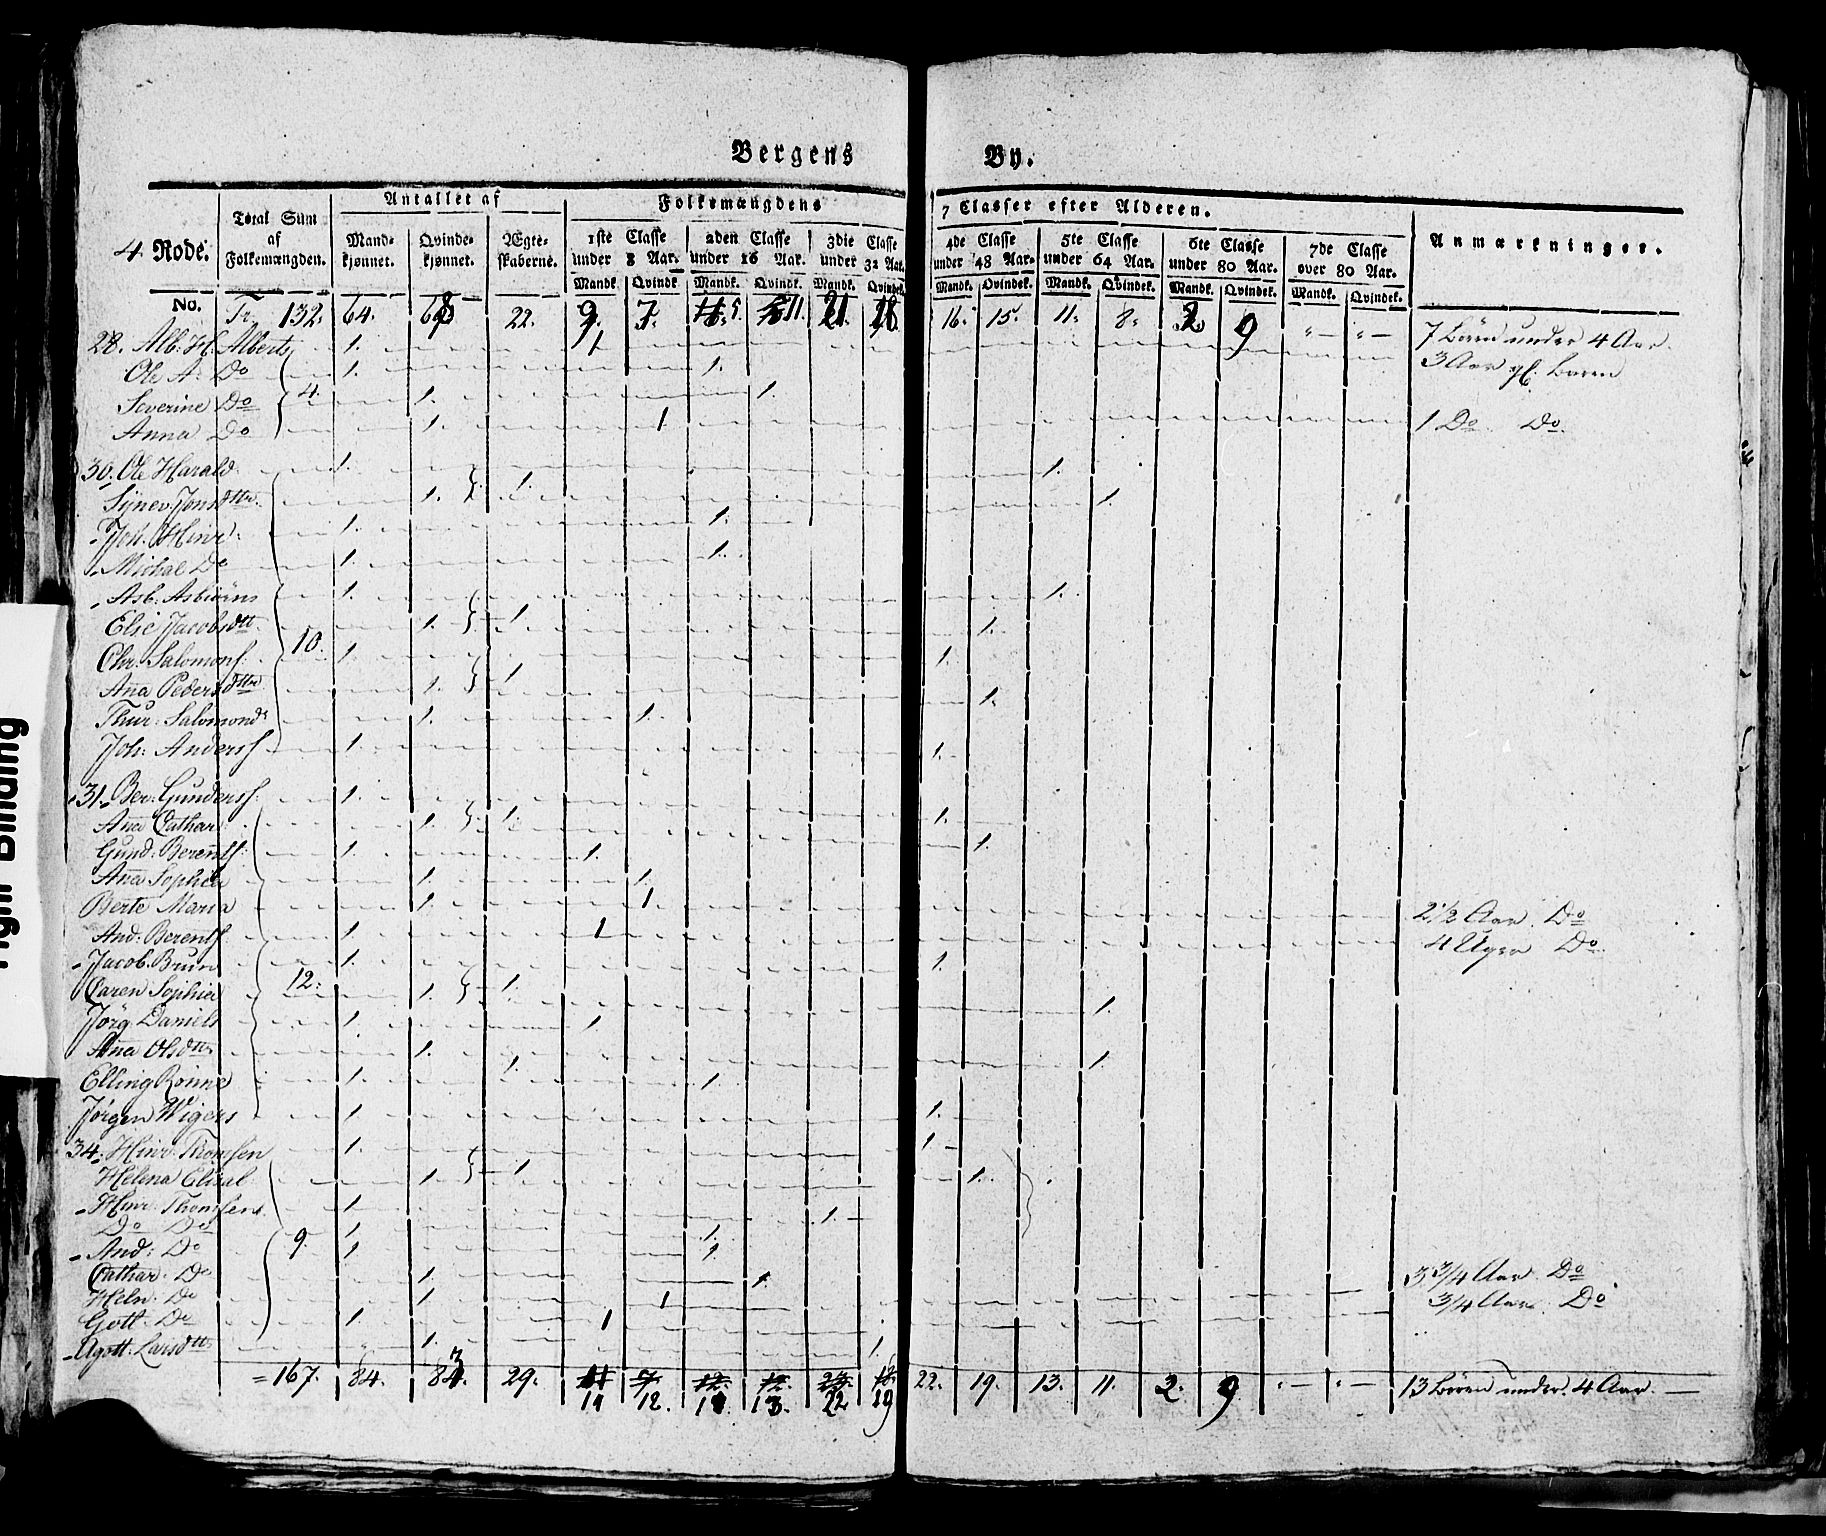 Bergens By.
4. Rode.
Total Sum af Folkemængden.
Antallet af
Mandkjønnet. Qvindekjønnet. Ægteskaberne.
Folkemængdens 7 Classer efter Alderen.
1ste Classe under 8 Aar. 2den Classe under 16 Aar. 3die Classe under 32 Aar. 4de Classe under 48 Aar. 5te Classe under 64 Aar. 6te Classe under 80 Aar. 7de Classe over 80 Aar.
Mandk. Qvindek. Mandk. Qvindek. Mandk. Qvindek. Mandk. Qvindek. Mandk. Qvindek. Mandk. Qvindek. Mandk. Qvindek.
Anmærkninger.
No. Tr. 132. 64. 68 22. 9. 7. 5. 11. 21. 18 16. 15. 11. 8. 2. 9 " — " — 7 Börn under 4 Aar.
28. Alb: H. Alberts 1. 1 3 Aar gl. Barn
Ole A: Do 1. 1.
Severine Do 4. 1. 1.
Anna Do 1. 1 1 Do Do.
30. Ole Harald 1. 1. 1.
Synev: Jonsdttr. 1. 1.
Joh. Hinr: 1. 1.
Michal Do 1. 1.
Asb. Asbiörns 1. 1. 1.
Else Jacobsdtt. 1. 1.
Chr. Salomons. 10. 1. 1. 1.
Aña Pedersdttr 1. 1.
Thur: Salomonds 1. 1.
Joh: Anders 1. 1.
31. Ber: Gunders. 1. 1. 1.
Aña Cathar: 1. 1.
Gund: Berents. 1. 1.
Aña Sophia 1. 1.
Berte Maria 1. 1 2 1/2 Aar. Do
And: Berents. 1. 1 4 Uger Do.
Jacob Brun 1. 1. 1.
Caren Sophia 12. 1. 1.
Jörg: Daniels 1. 1.
Aña Olsdttr 1. 1.
Elling Rönne 1. 1. 1.
Jörgen Wigers 1. 1.
34. Hinr: Thomsen 1. 1. 1
Helena Elisab. 1. 1.
Hinr: Thomsens 1. 1.
Do Do 1. 1.
And: Do 9. 1. 1.
Cathar. Do 1. 1.
Heln. Do 1. 1 3 3/4 Aar Do
Gott: Do 1. 1 3/4 Aar. Do
Agott: Larsdttr 1. 1.
= 167. 84. 83 29. 11 12. 13. 22 19 22. 19. 13. 11. 2. 9 " — " — 13 Börn under 4 Aar. —